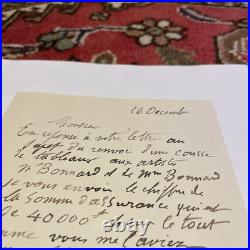 16 Décembre
Monsieur
En réponse à votre lettre au
sujet du renvoi d'une caisse
de tableaux aux artistes
Mr Bonnard et de Mme Bonnard
je vous envoie le chiffre de
la somme d'assurance qui est
de 40 000 pour le tout
comme vous me l'avez